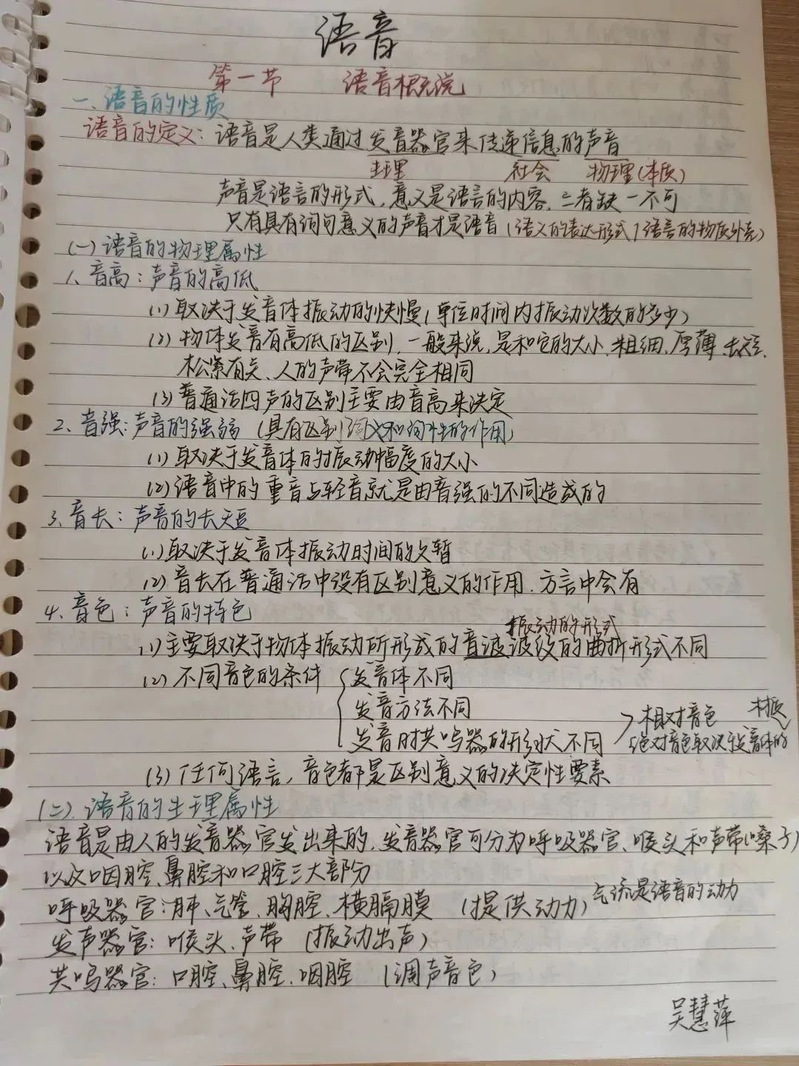 语音
第一节 语音概说
一、语音的性质
语音的定义：语音是人类通过发音器官来传递信息的声音
生理 社会 物理(本质)
声音是语言的形式，意义是语言的内容，二者缺一不可
只有具有词句意义的声音才是语音(语义的表达形式/语言的物质外壳)
(一)语音的物理属性
1、音高：声音的高低
(1)取决于发音体振动的快慢(单位时间内振动次数的多少)
(2)物体发音有高低的区别，一般来说，是和它的大小、粗细、厚薄、长短、
松紧有关、人的声带不会完全相同
(3)普通话四声的区别主要由音高来决定
2、音强：声音的强弱 (具有区别词义和词性的作用)
(1)取决于发音体的振动幅度的大小
(2)语音中的重音与轻音就是由音强的不同造成的
3、音长：声音的长短
(1)取决于发音体振动时间的久暂
(2)音长在普通话中没有区别意义的作用，方言中会有
4、音色：声音的特色
振动的形式
(1)主要取决于物体振动所形成的音波波纹的曲折形式不同
(2)不同音色的条件 { 发音体不同
发音方法不同
发音时共鸣器的形状不同 > 相对音色 材质
绝对音色取决于发音体的
(3)任何语言，音色都是区别意义的决定性要素
(二)、语音的生理属性
语音是由人的发音器官发出来的，发音器官可分为呼吸器官、喉头和声带(嗓子)
以及咽腔、鼻腔和口腔三大部分
呼吸器官：肺、气管、胸腔、横膈膜 (提供动力) 气流是语音的动力
发声器官：喉头、声带 (振动出声)
共鸣器官：口腔、鼻腔、咽腔 (调声音色)
吴慧萍